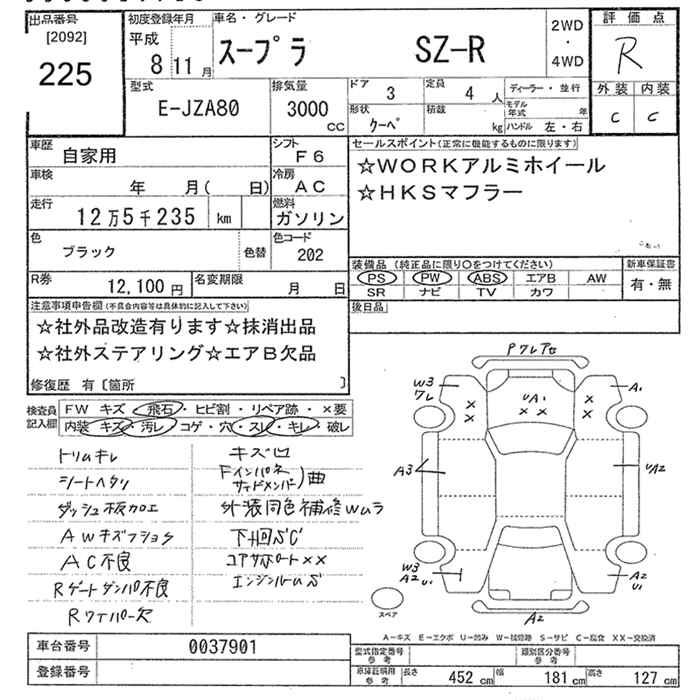 出品番号
[2092]
225
初度登録年月
平成
8 11 月
車名・グレード
スープラ SZ-R
2WD
・
4WD
評価点
R
外装 内装
C C
型式
E-JZA80
排気量
3000
cc
ドア
3
定員
4 人
ディーラー・並行
モデル年式 年
形状
クーペ
積載
kg
ハンドル 左・右
車歴
自家用
シフト
F6
車検
年 月( 日)
冷房
AC
走行
12万5千235 km
燃料
ガソリン
色
ブラック
色替
色コード
202
R券
12,100円
名変期限
月 日
セールスポイント(正常に機能するものに限ります)
☆WORKアルミホイール
☆HKSマフラー
装備品 (純正品に限り〇をつけてください)
新車保証書
PS PW ABS エアB AW
SR ナビ TV カワ
有・無
後日品
注意事項申告欄(不具合内容等は具体的に記入して下さい)
☆社外品改造有ります☆抹消出品
☆社外ステアリング☆エアB欠品
修復歴 有〔箇所 〕
検査員
記入欄
FW キズ・飛石・ヒビ割・リペア跡・×要
内装 キズ・汚レ・コゲ・穴・スレ・キレ・破レ
トリムキレ
シートヘタリ
ダッシュ板加工
AWキズフショク
AC不良
Rゲートダンパ不良
Rワイパー欠
キズ凹
Fインパネ
サイドメンバー)曲
外装同色補修Wムラ
下廻サビ
コアサポート××
エンジンルームS
Pワレアセ
W3
ワレ
A1
×
×
UA1
× ×
×
×
A3
UA2
W3
A2 U1
A2
U1
A2
スペア
A-キズ E-エクボ U-凹み W-補修跡 S-サビ C-腐食 XX-交換済
車台番号
0037901
登録番号
型式指定番号
参考
類別区分番号
参考
車検証明用
参考
長さ 452 cm
幅 181 cm
高さ 127 cm